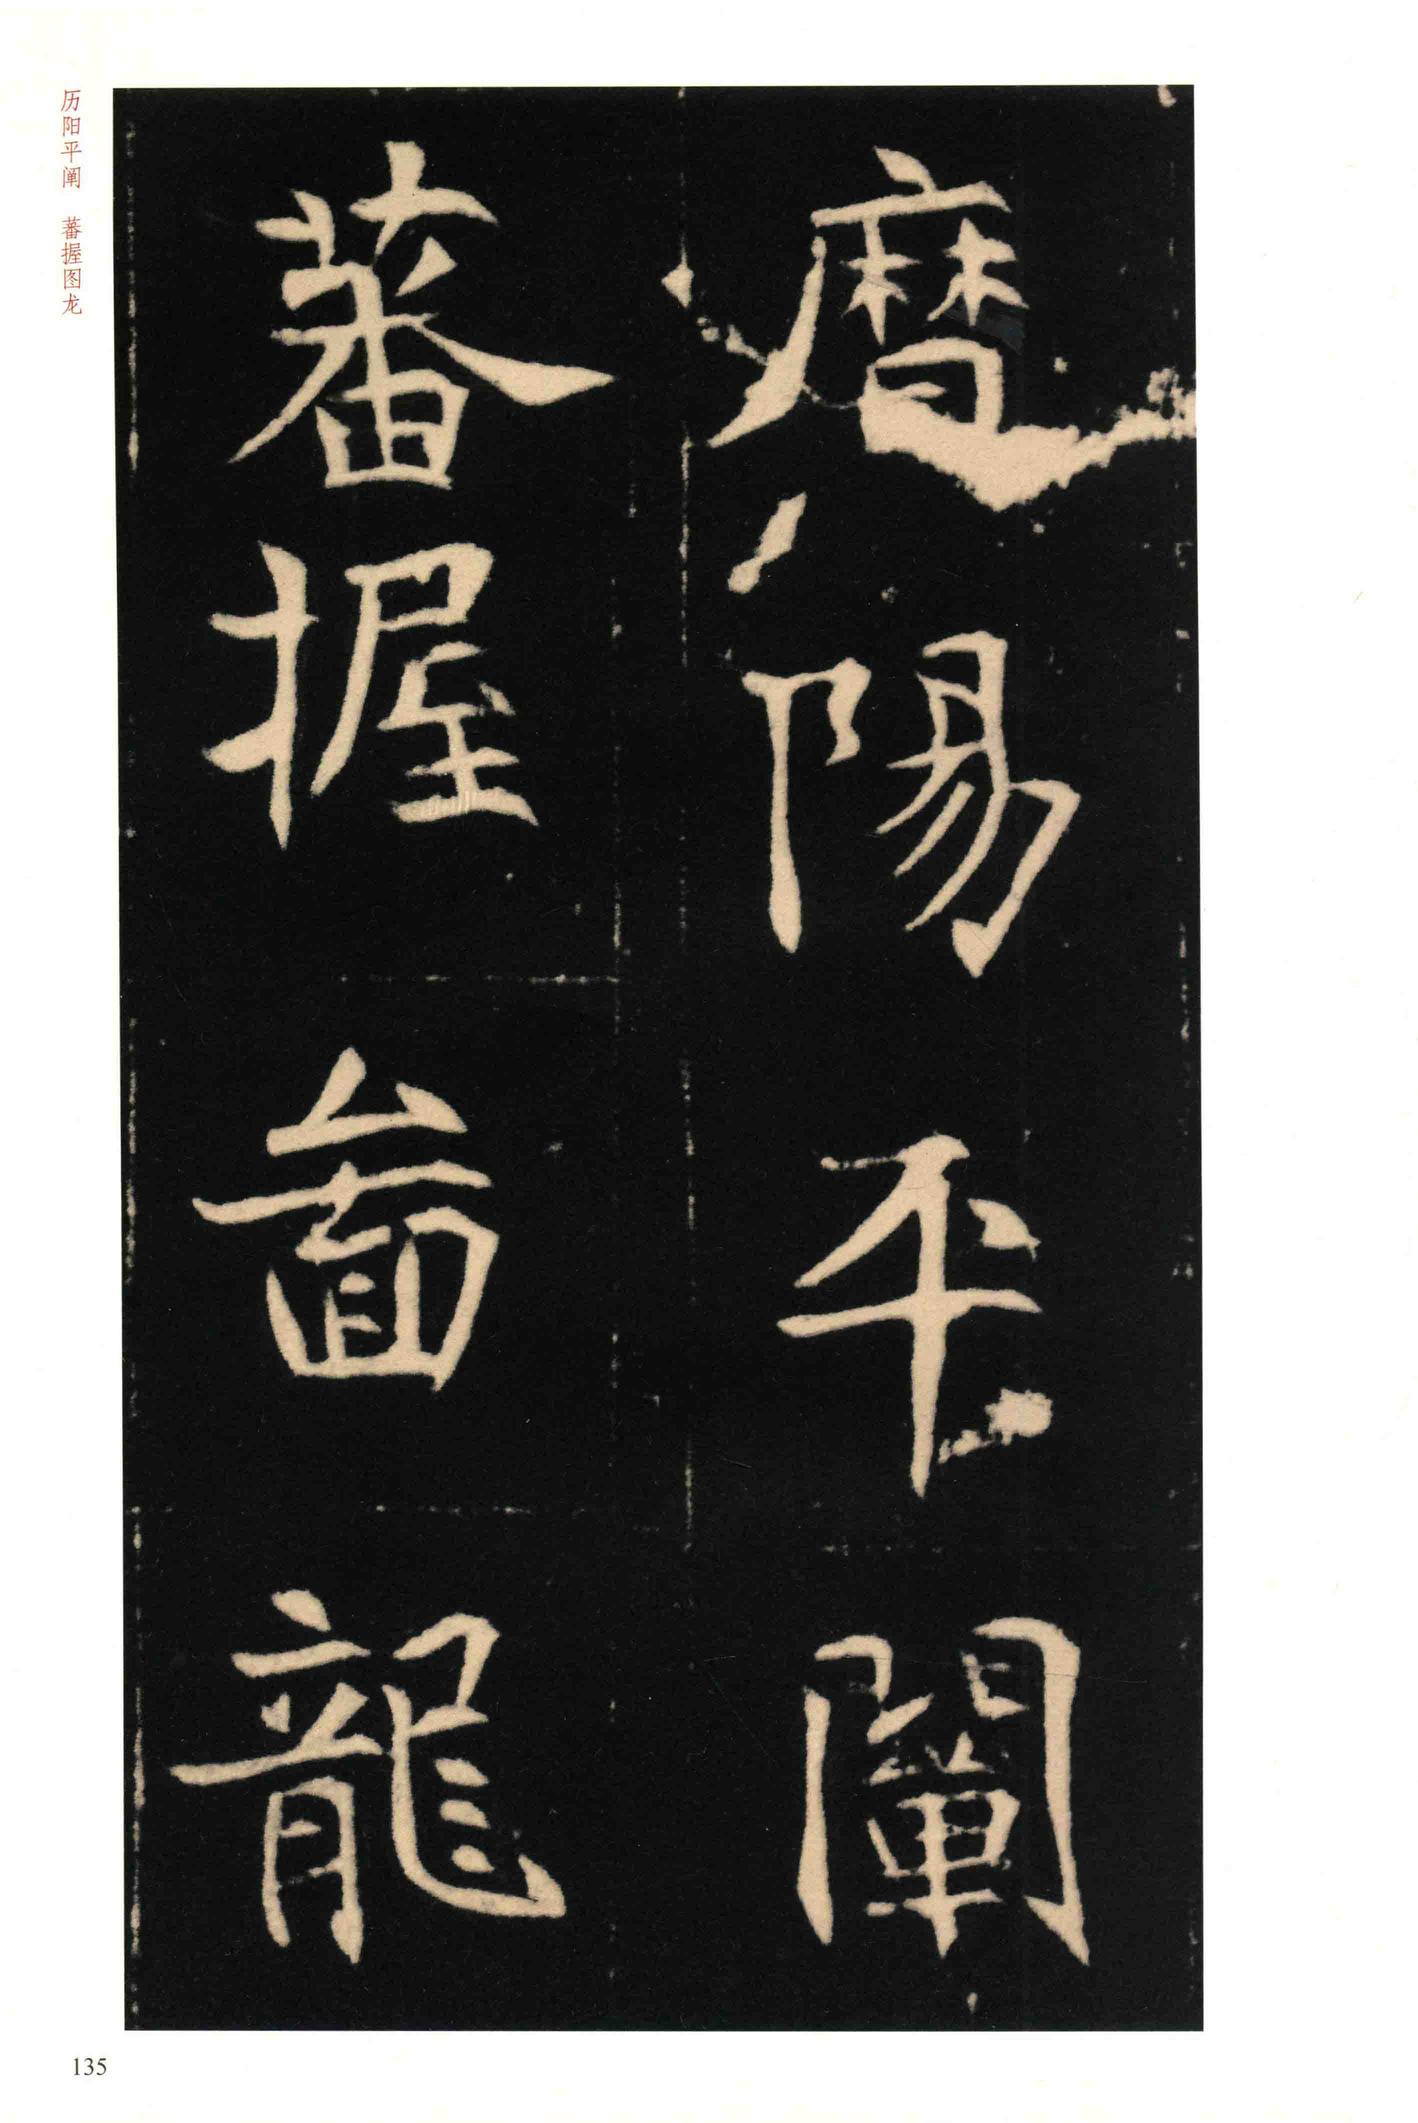 曆陽平闡
蕃握啚龍
历阳平阐 蕃握图龙
135